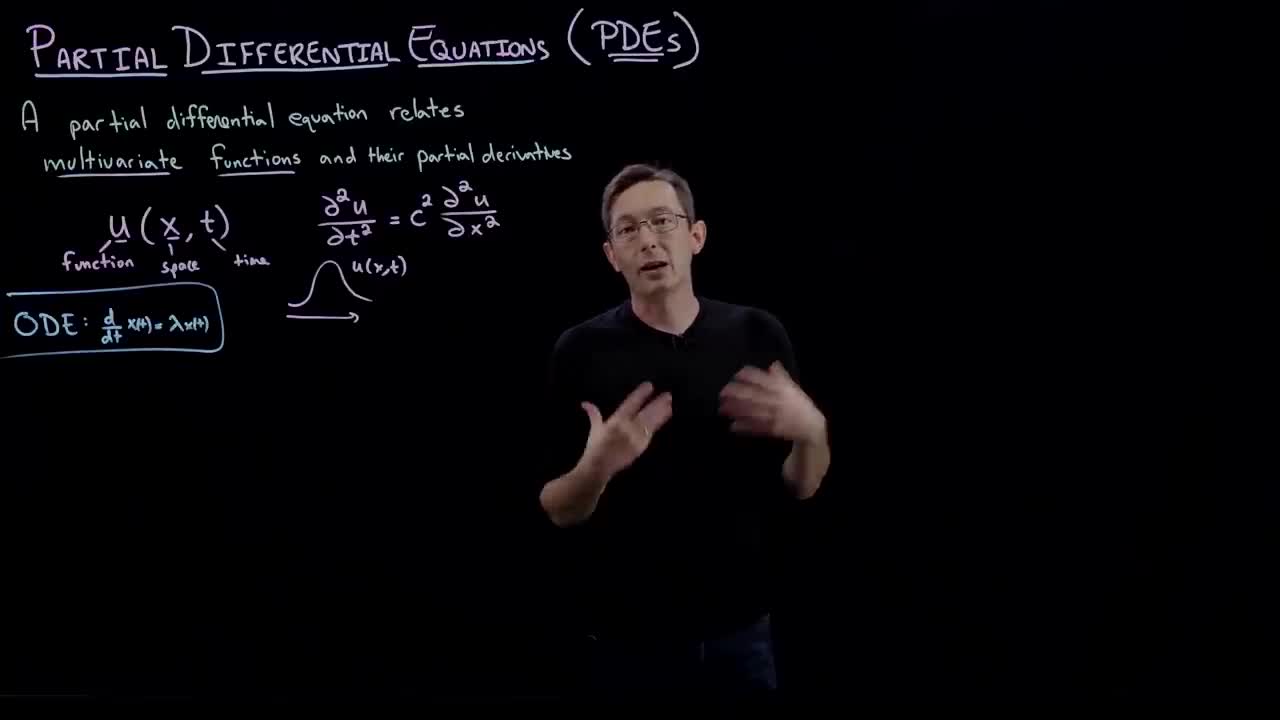 PARTIAL DIFFERENTIAL EQUATIONS (PDEs)
A partial differential equation relates
multivariate functions and their partial derivatives
u(x,t)
function space time
∂²u/∂t² = c² ∂²u/∂x²
u(x,t)
ODE: d/dt x(t) = λx(t)